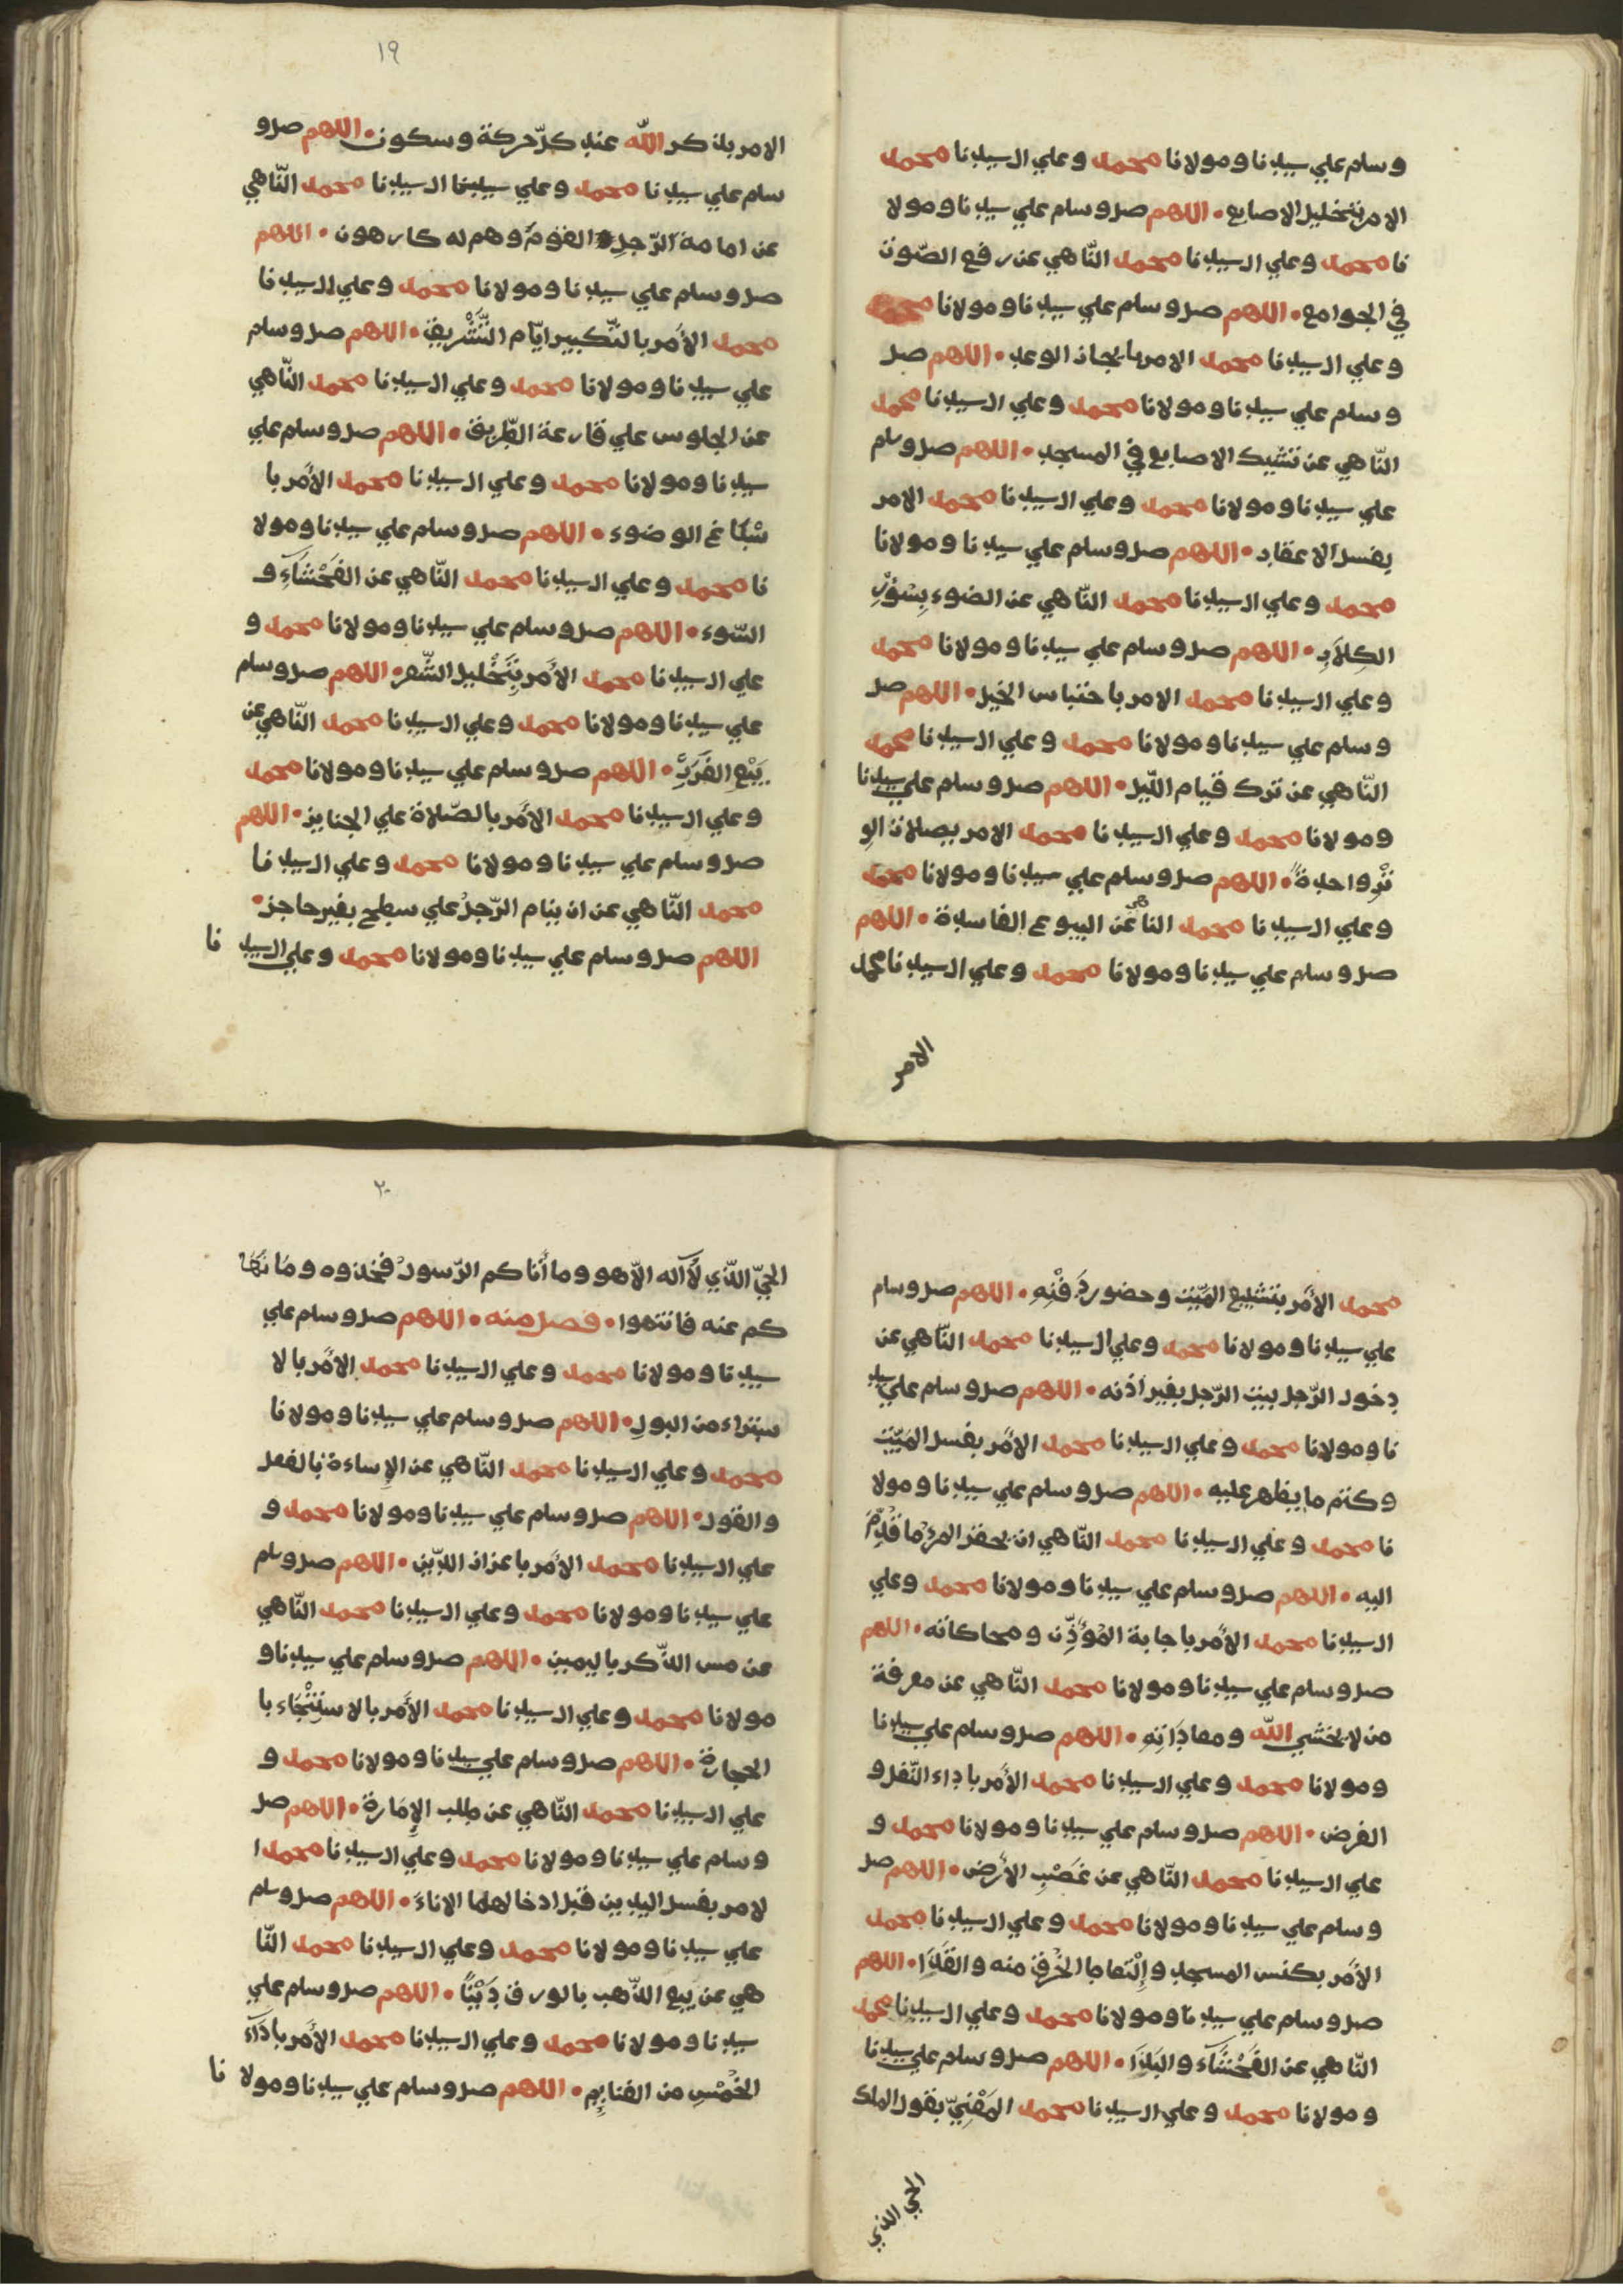 وسلم علي سيدنا ومولانا محمد وعلي ال سيدنا محمد
الامر بتخليل الاصابع. اللهم صل وسلم علي سيدنا ومولا
نا محمد وعلي ال سيدنا محمد النّاهي عن رفع الصّوت
في الجوامع. اللهم صل وسلم علي سيدنا ومولانا محمد
وعلي ال سيدنا محمد الامر بانجاز الوعد. اللهم صل
وسلم علي سيدنا ومولانا محمد وعلي ال سيدنا محمد
النّاهي عن تشبيك الاصابع في المسجد. اللهم صل وسلم
علي سيدنا ومولانا محمد وعلي ال سيدنا محمد الامر
بغسل الاعقاب. اللهم صل وسلم علي سيدنا ومولانا
محمد وعلي ال سيدنا محمد النّاهي عن الضوء بِسُؤْرِ
الكِلاَبِ. اللهم صل وسلم علي سيدنا ومولانا محمد
وعلي ال سيدنا محمد الامر باحتباس الخيل. اللهم صل
وسلم علي سيدنا ومولانا محمد وعلي ال سيدنا محمد
النّاهي عن ترك قيام اللّيل. اللهم صل وسلم علي سيدنا
ومولانا محمد وعلي ال سيدنا محمد الامر بصلات الوِ
تْرِ واحدةً. اللهم صل وسلم علي سيدنا ومولانا محمد
وعلي ال سيدنا محمد الناهي عن البيوع الفاسدة. اللهم
صل وسلم علي سيدنا ومولانا محمد وعلي ال سيدنا محمد
الامر
١٩
الامر بذكر اللّه عند كلّ حركة وسكون. اللهم صل و
سلم علي سيدنا محمد وعلي سيدنا ال سيدنا محمد النّاهي
عن امامة الرّجل القومَ وهم له كارهون. اللهم
صل وسلم علي سيدنا ومولانا محمد وعلي ال سيدنا
محمد الأمر بالتّكبير ايّام التّشْريق. اللهم صل وسلم
علي سيدنا ومولانا محمد وعلي ال سيدنا محمد النّاهي
عن الجلوس علي قارعة الطّريق. اللهم صل وسلم علي
سيدنا ومولانا محمد وعلي ال سيدنا محمد الأمر با
سْباغ الوضوء. اللهم صل وسلم علي سيدنا ومولا
نا محمد وعلي ال سيدنا محمد النّاهي عن الفَحْشَآءِ و
السّوء. اللهم صل وسلم علي سيدنا ومولانا محمد و
علي ال سيدنا محمد الأمر بِتَخْليل الشّعر. اللهم صل وسلم
علي سيدنا ومولانا محمد وعلي ال سيدنا محمد النّاهي عن
بَيْعِ الغَرَرِ. اللهم صل وسلم علي سيدنا ومولانا محمد
وعلي ال سيدنا محمد الأمر بالصّلاة علي الجنايز. اللهم
صل وسلم علي سيدنا ومولانا محمد وعلي ال سيدنا
محمد النّاهي عن ان ينام الرّجلُ علي سطح بغير حاجز.
اللهم صل وسلم علي سيدنا ومولانا محمد وعلي ال سيد نا
محمد الأمر بتشييع الميّت وحضور دَفْنِهِ. اللهم صل وسلم
علي سيدنا ومولانا محمد وعلي ال سيدنا محمد النّاهي عن
دخول الرّجل بيت الرّجل بغير اذنه. اللهم صل وسلم علي سيد
نا ومولانا محمد وعلي ال سيدنا محمد الأمر بغسل الميّت
وكتم ما يظهر عليه. اللهم صل وسلم علي سيدنا ومولا
نا محمد وعلي ال سيدنا محمد النّاهي ان يحقر المرْءُ ما قُدِّمَ
اليه. اللهم صل وسلم علي سيدنا ومولانا محمد وعلي
ال سيدنا محمد الأمر باجابة المُؤَذِّن ومحاكاته. اللهم
صل وسلم علي سيدنا ومولانا محمد النّاهي عن معرفة
من لا يخشي اللّه ومعادَاتِهِ. اللهم صل وسلم علي سيدنا
ومولانا محمد وعلي ال سيدنا محمد الأمر باداء النّفل و
الفرض. اللهم صل وسلم علي سيدنا ومولانا محمد و
علي ال سيدنا محمد النّاهي عن غَصْبِ الأرض. اللهم صل
وسلم علي سيدنا ومولانا محمد وعلي ال سيدنا محمد
الأمر بكنس المسجد والتقاط الخِرَق منه والقَذَا. اللهم
صل وسلم علي سيدنا ومولانا محمد وعلي ال سيدنا محمد
النّاهي عن الفَحْشَآء والبَذَا. اللهم صل وسلم علي سيدنا
ومولانا محمد وعلي ال سيدنا محمد المَعْنِيّ بقول الملك
الحي الذي
٢٠
الحيّ الّذي لَآ اله الّا هو وما أتاكم الرّسولُ فخذوه وما نَهَا
كم عنه فانتهوا. فصل منه. اللهم صل وسلم علي
سيدنا ومولانا محمد وعلي ال سيدنا محمد الأمر بالا
ستبراء من البول. اللهم صل وسلم علي سيدنا ومولانا
محمد وعلي ال سيدنا محمد النّاهي عن الإساءة بالفعل
والقول. اللهم صل وسلم علي سيدنا ومولانا محمد و
علي ال سيدنا محمد الأمر باعزاز الدّين. اللهم صل وسلم
علي سيدنا ومولانا محمد وعلي ال سيدنا محمد النّاهي
عن مس الذّكر باليمين. اللهم صل وسلم علي سيدنا و
مولانا محمد وعلي ال سيدنا محمد الأمر بالاستنْجَاء با
لحجارة. اللهم صل وسلم علي سيدنا ومولانا محمد و
علي ال سيدنا محمد النّاهي عن طلب الإِمَارة. اللهم صل
وسلم علي سيدنا ومولانا محمد وعلي ال سيدنا محمد ا
لامر بغسل اليدين قبل ادخالهما الاناءَ. اللهم صل وسلم
علي سيدنا ومولانا محمد وعلي ال سيدنا محمد النّا
هي عن بيع الذّهب بالورق دَيْنًا. اللهم صل وسلم علي
سيدنا ومولانا محمد وعلي ال سيدنا محمد الأمر بادَآء
الخُمْسِ من الغنايِم. اللهم صل وسلم علي سيدنا ومولا نا